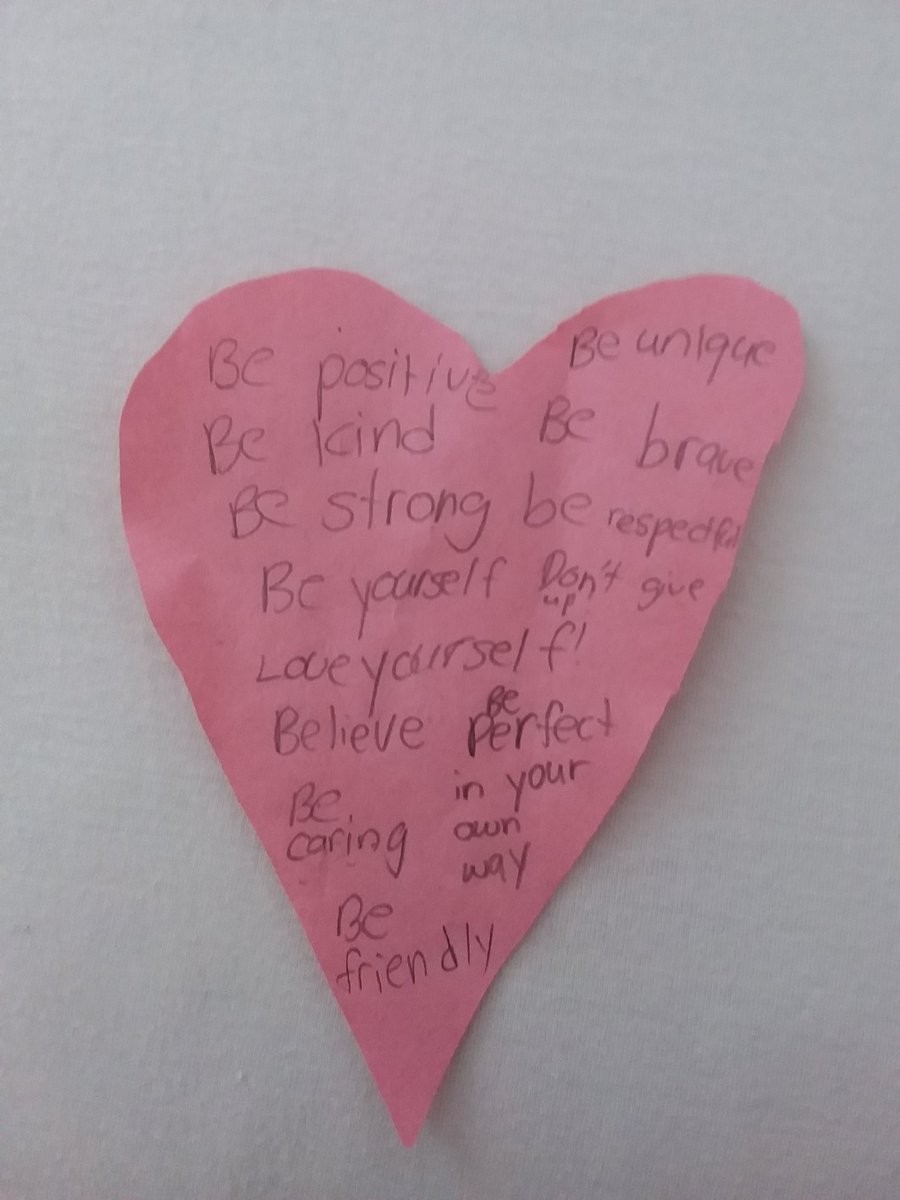 Be positive Be unique
Be kind Be brave
Be strong be respectful
Be yourself Don't give
up!
Love yourself!
Believe Be Perfect
in your
Be
caring own
way
Be
friendly